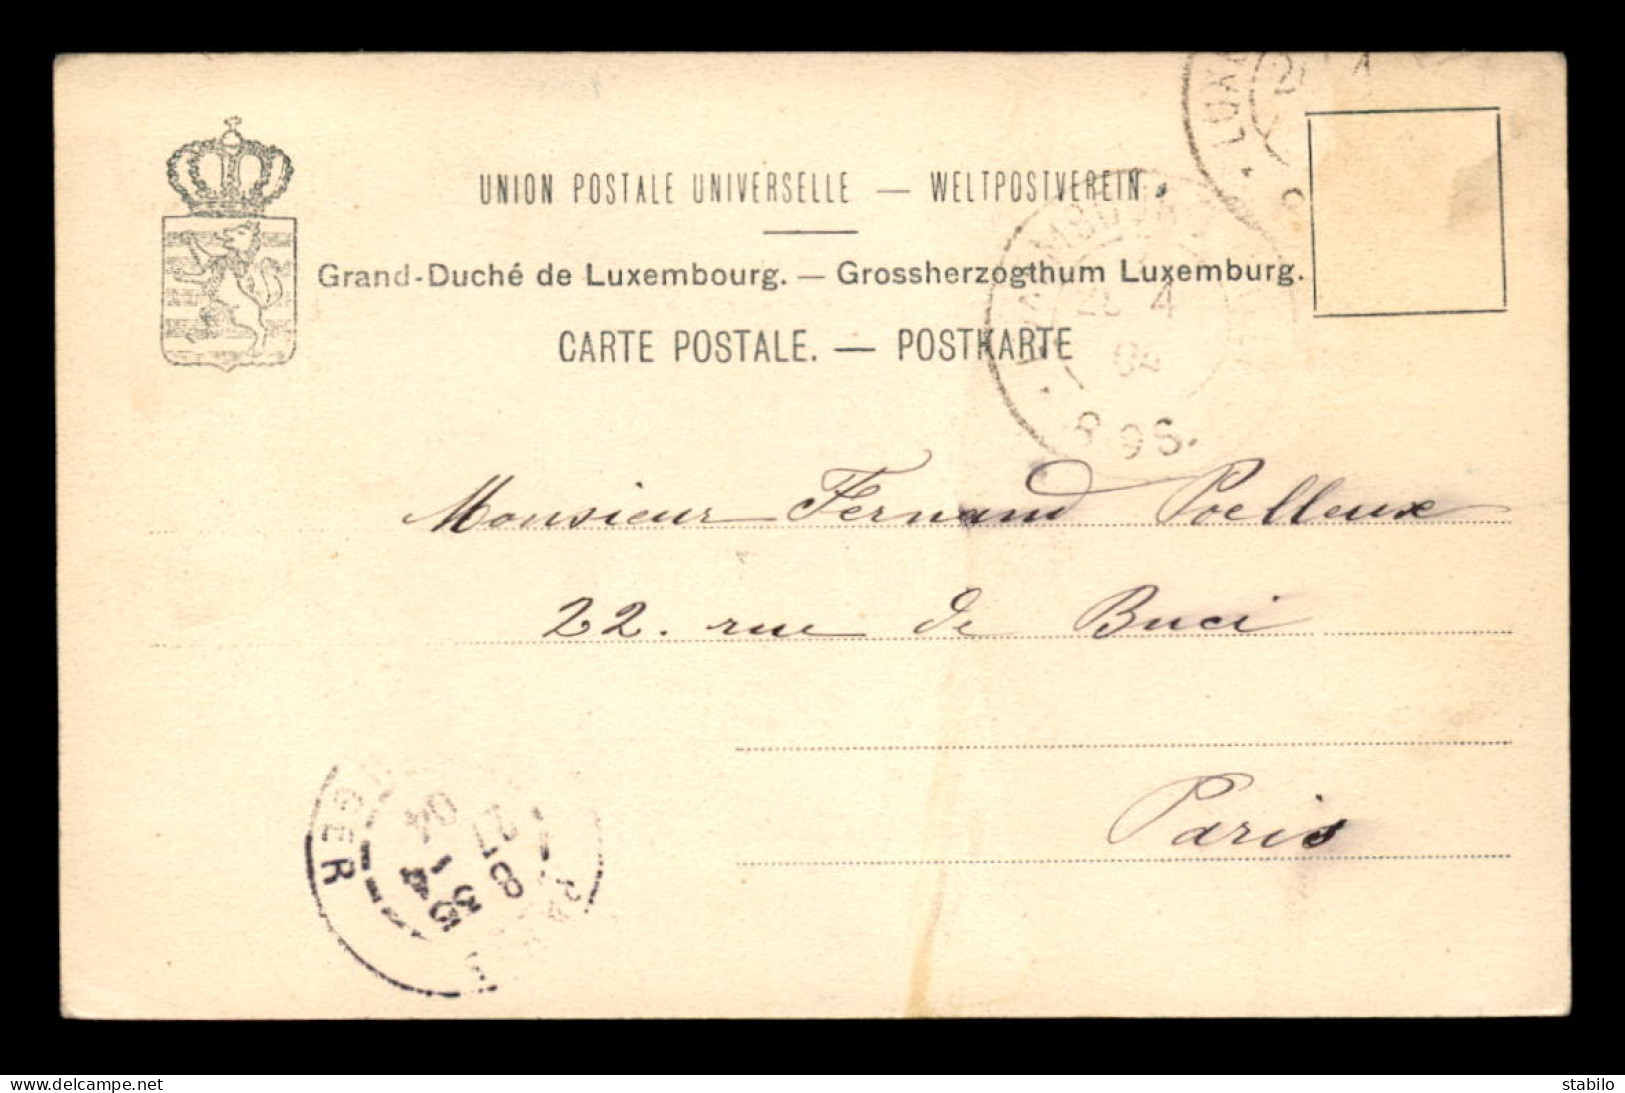 UNION POSTALE UNIVERSELLE — WELTPOSTVEREIN
Grand-Duché de Luxembourg. — Grossherzogthum Luxemburg.
CARTE POSTALE. — POSTKARTE
Monsieur Fernand Poelleux
22. rue de Buci
Paris
8 9S.
GER
delcampe.net
stabilo